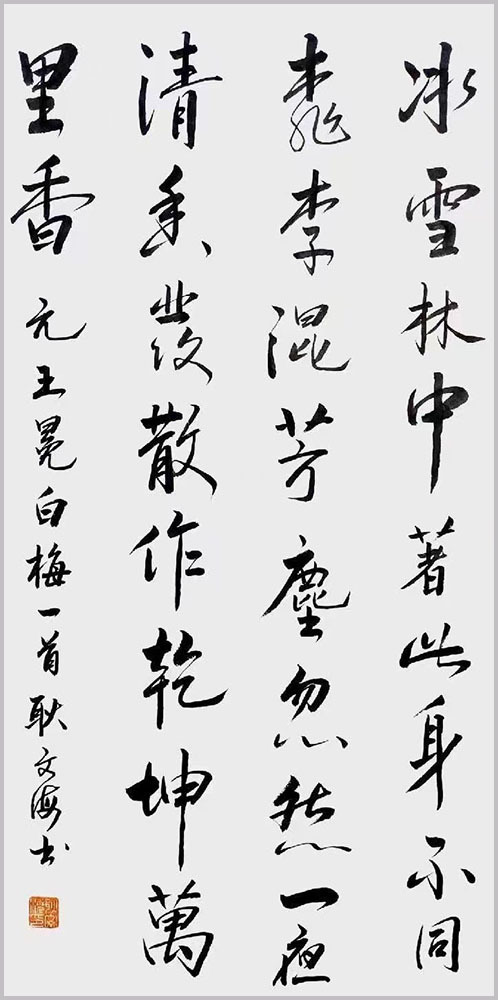 冰雪林中著此身不同
桃李混芳塵忽然一夜
清香發散作乾坤萬
里香 元王冕白梅一首耿文海书